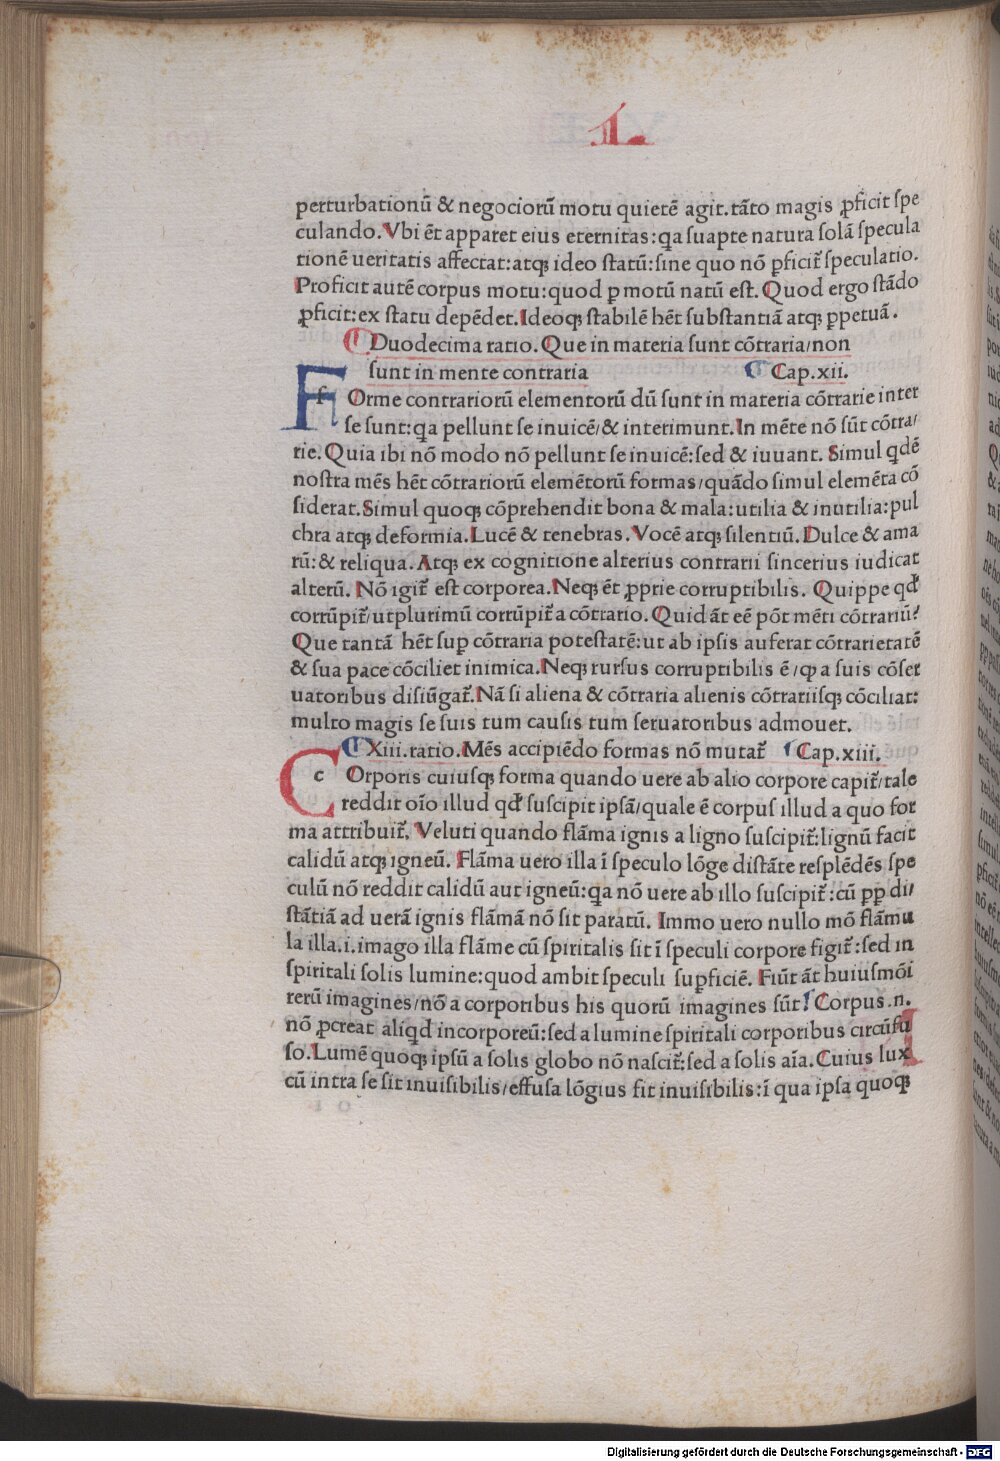 L
perturbationū & negociorū motu quietē agit. tāto magis ꝓficit ſpe
culando. Vbi ēt apparet eius eternitas: qa ſuapte natura ſolā ſpecula
tionē ueritatis affectat: atqꝫ ideo ſtatū: ſine quo nō ꝓficit̄ ſpeculatio.
Proficit autē corpus motu: quod ꝑ motū natū eſt. Quod ergo ſtādo
ꝓficit: ex ſtatu depēdet. Ideoqꝫ ſtabilē hēt ſubſtantiā atqꝫ ꝑpetuā.
Duodecima ratio. Que in materia ſunt cōtraria/non
ſunt in mente contraria Cap.xii.
F
f Orme contrariorū elementorū dū ſunt in materia cōtrarie inter
ſe ſunt: qa pellunt ſe inuicē/& interimunt. In mēte nō ſūt cōtra/
rie. Quia ibi nō modo nō pellunt ſe inuicē: ſed & iuuant. Simul qdē
noſtra mēs hēt cōtrariorū elemētorū formas/quādo ſimul elemēta cō
ſiderat. Simul quoqꝫ cōprehendit bona & mala: utilia & inutilia: pul
chra atqꝫ deformia. Lucē & tenebras. Vocē atqꝫ ſilentiū. Dulce & ama
rū: & reliqua. Atqꝫ ex cognitione alterius contrarii ſincerius iudicat
alterū. Nō igit̄ eſt corporea. Neqꝫ ēt ꝓprie corruptibilis. Quippe qd̄
corrūpit̄/ut plurimū corrūpit̄ a cōtrario. Quid āt eē pōt mēti cōtrariū?
Que tantā hēt ſuꝑ cōtraria poteſtatē: ut ab ipſis auferat cōtrarietatē
& ſua pace cōciliet inimica. Neqꝫ rurſus corruptibilis ē/ꝙ a ſuis cōſer
uatoribus diſiūgat̄. Nā ſi aliena & cōtraria alienis cōtrariiſqꝫ cōciliat:
multo magis ſe ſuis tum cauſis tum ſeruatoribus admouet.
Xiii. ratio. Mēs accipiēdo formas nō mutat̄ Cap.xiii.
C
c Orporis cuiuſqꝫ forma quando uere ab alio corpore capit̄/tale
reddit oīo illud qd̄ ſuſcipit ipſā/quale ē corpuſ illud a quo for
ma attribuit̄. Veluti quando flāma ignis a ligno ſuſcipit̄: lignū facit
calidū atqꝫ igneū. Flāma uero illa ī ſpeculo lōge diſtāte reſplēdēs ſpe
culū nō reddit calidū aut igneū: qa nō uere ab illo ſuſcipit̄: cū ꝑꝑ di/
ſtātiā ad uerā ignis flāmā nō ſit paratū. Immo uero nullo mō flāmu
la illa. i. imago illa flāme cū ſpiritalis ſit ī ſpeculi corpore figit̄: ſed in
ſpiritali ſolis lumine: quod ambit ſpeculi ſuꝑficiē. Fiūt āt huiuſmōi
rerū imagines/nō a corporibus his quorū imagines ſūt! Corpus .n.
nō ꝓcreat aliqd incorporeū: ſed a lumine ſpiritali corporibus circūfu
ſo. Lumē quoqꝫ ipſū a ſolis globo nō naſcit̄: ſed a ſolis aīa. Cuius lux
cū intra ſe ſit inuiſibilis/effuſa lōgius fit inuiſibilis: ī qua ipſa quoqꝫ
Digitalisierung gefördert durch die Deutsche Forschungsgemeinschaft - DFG